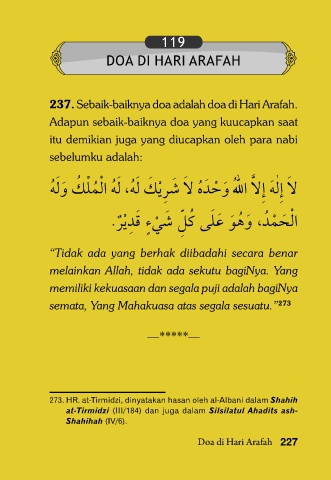 119
DOA DI HARI ARAFAH
237. Sebaik-baiknya doa adalah doa di Hari Arafah.
Adapun sebaik-baiknya doa yang kuucapkan saat
itu demikian juga yang diucapkan oleh para nabi
sebelumku adalah:
لاَ إِلَهَ إِلاَّ اللهُ وَحْدَهُ لاَ شَرِيْكَ لَهُ، لَهُ الْمُلْكُ وَلَهُ
الْحَمْدُ، وَهُوَ عَلَى كُلِّ شَيْءٍ قَدِيْرٌ.
“Tidak ada yang berhak diibadahi secara benar
melainkan Allah, tidak ada sekutu bagiNya. Yang
memiliki kekuasaan dan segala puji adalah bagiNya
semata, Yang Mahakuasa atas segala sesuatu.”273
—*****—
273. HR. at-Tirmidzi, dinyatakan hasan oleh al-Albani dalam Shahih
at-Tirmidzi (III/184) dan juga dalam Silsilatul Ahadits ash-
Shahihah (IV/6).
Doa di Hari Arafah 227